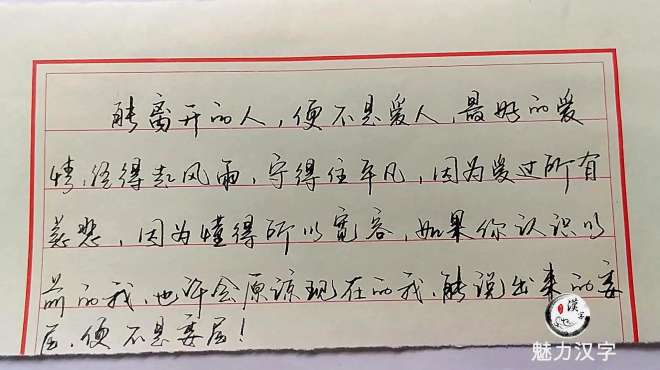 能离开的人，便不是爱人，最好的爱
情，经得起风雨，守得住平凡，因为爱过所有
慈悲，因为懂得所以宽容，如果你认识以
前的我，也许会原谅现在的我，能说出来的委
屈，便不是委屈！
漢字
魅力汉字